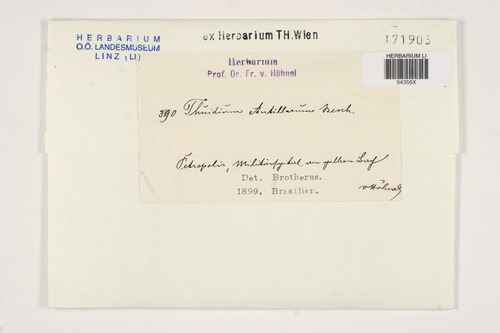 HERBARIUM
O.Ö. LANDESMUSEUM
LINZ (LI)
ex Herbarium TH.Wien
171903
HERBARIUM LI
54355X
Herbarium
Prof. Dr. Fr. v. Höhnel
390 Thuidium Antillarum Besch.
Petropolis, Militärspital, am
Det. Brotherus.
1899, Brasilien.
v Höhnel